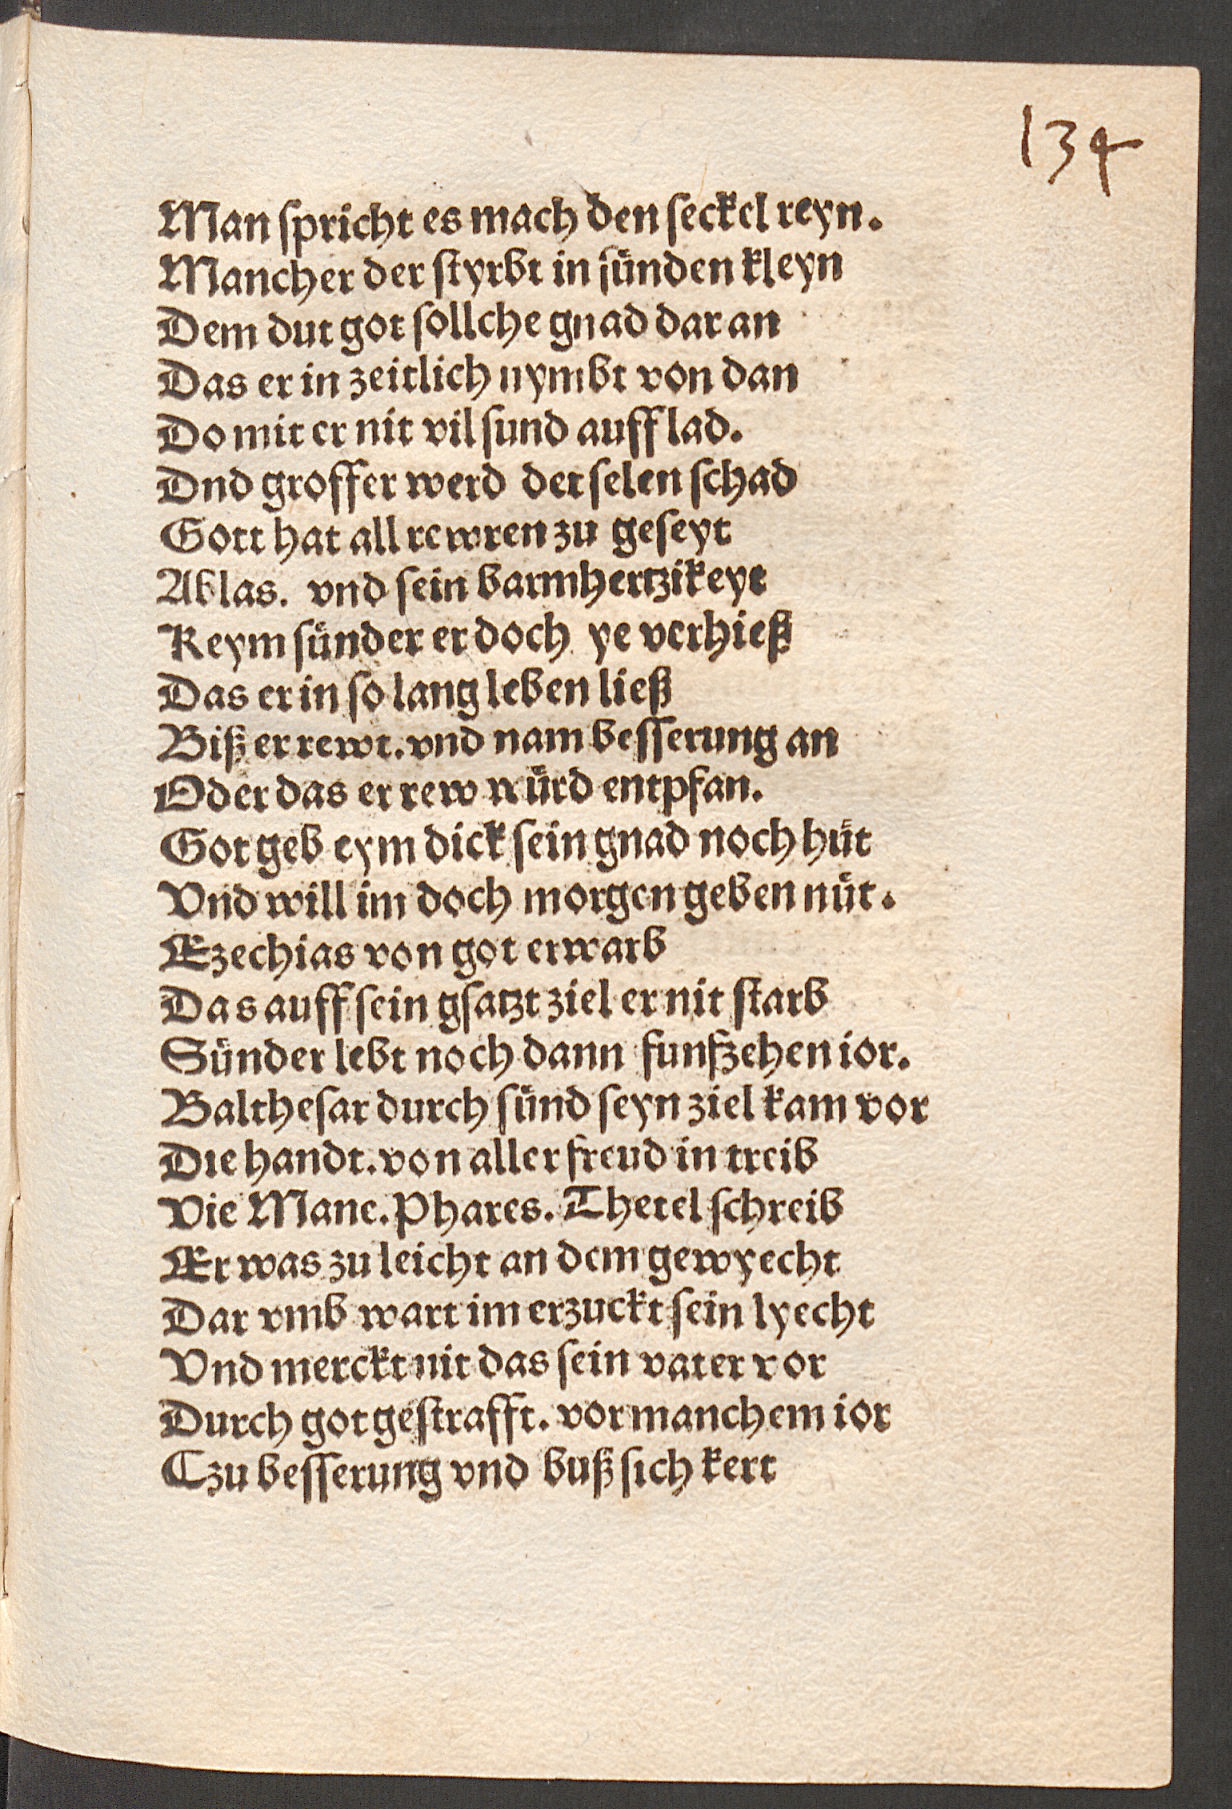 134
Man spricht es mach den seckel reyn.
Mancher der styrbt in sünden kleyn
Dem dut got sollche gnad dar an
Das er in zeitlich nymbt von dan
Do mit er nit vil sund auff lad.
Vnd grosser werd der selen schad
Gott hat all rewren zu geseyt
Ablas. vnd sein barmhertzikeyt
Keym sünder er doch ye verhieß
Das er in so lang leben ließ
Biß er rewt. vnd nam besserung an
Oder das er rew würd entpfan.
Got geb eym dick sein gnad noch hüt
Vnd will im doch morgen geben nüt.
Ezechias von got erwarb
Das auff sein gsatzt ziel er nit starb
Sünder lebt noch dann funfzehen ior.
Balthesar durch sünd seyn ziel kam vor
Die handt. von aller freud in treib
Die Mane. Phares. Thetel schreib
Er was zu leicht an dem gewyecht
Dar vmb wart im erzuckt sein lyecht
Vnd merckt nit das sein vater vor
Durch got gestrafft. vor manchem ior
Czu besserung vnd buß sich kert